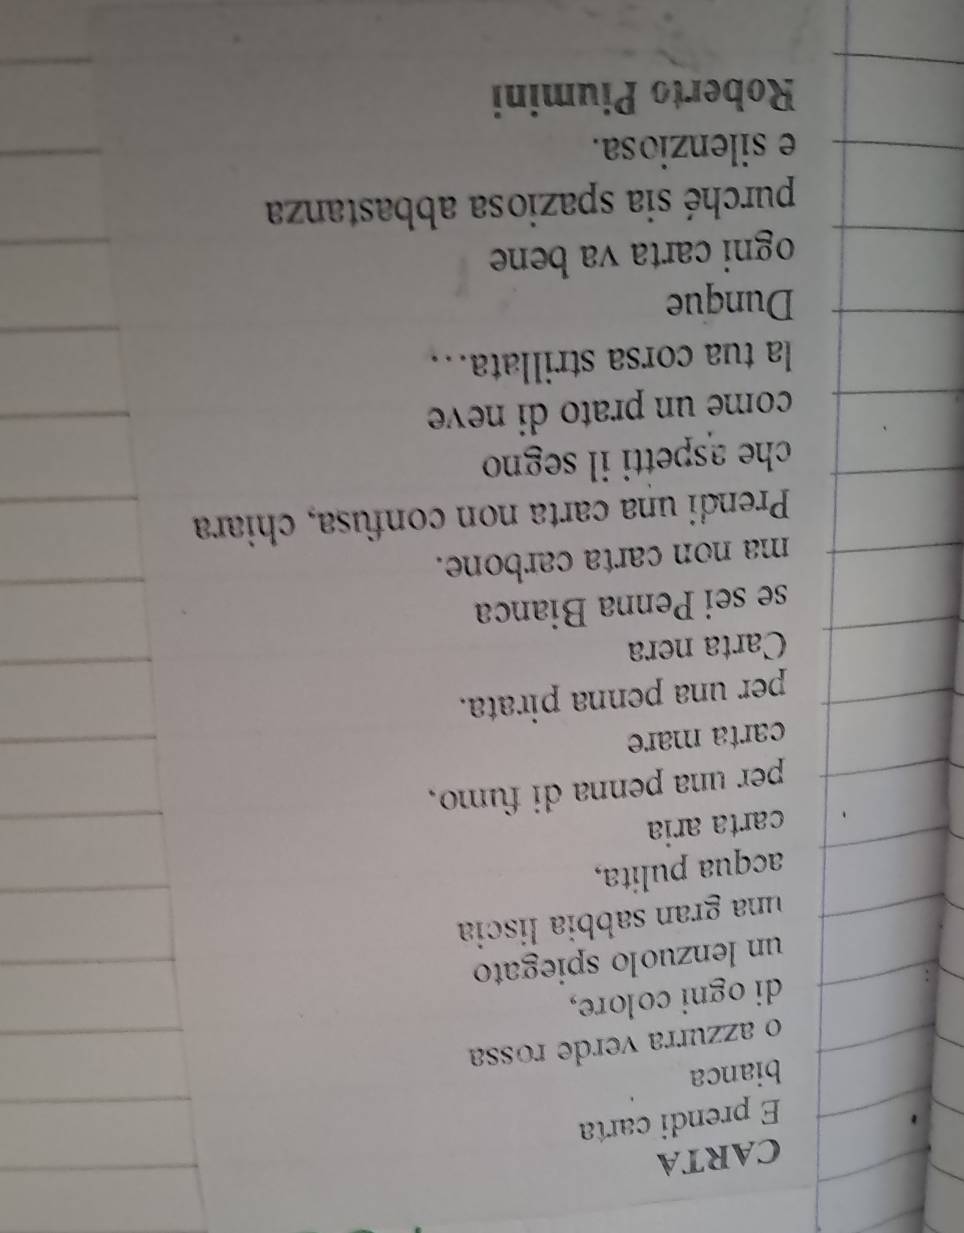 CARTA
E prendi carta
bianca
o azzurra verde rossa
di ogni colore,
un lenzuolo spiegato
una gran sabbia liscia
acqua pulita,
carta aria
per una penna di fumo,
carta mare
per una penna pirata.
Carta nera
se sei Penna Bianca
ma non carta carbone.
Prendi una carta non confusa, chiara
che aspetti il segno
come un prato di neve
la tua corsa strillata...
Dunque
ogni carta va bene
purché sia spaziosa abbastanza
e silenziosa.
Roberto Piumini